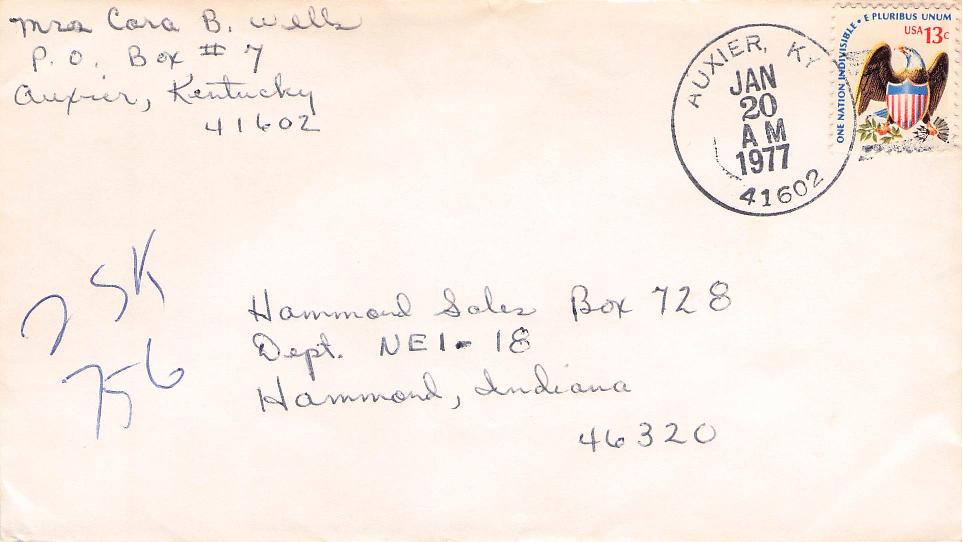 Mrs Cora B. Wells
P. O. Box # 7
Auxier, Kentucky
41602
AUXIER, KY
JAN
20
AM
1977
41602
ONE NATION INDIVISIBLE • E PLURIBUS UNUM
USA 13c
2 SK
756
Hammond Sales Box 728
Dept. NE1-18
Hammond, Indiana
46320